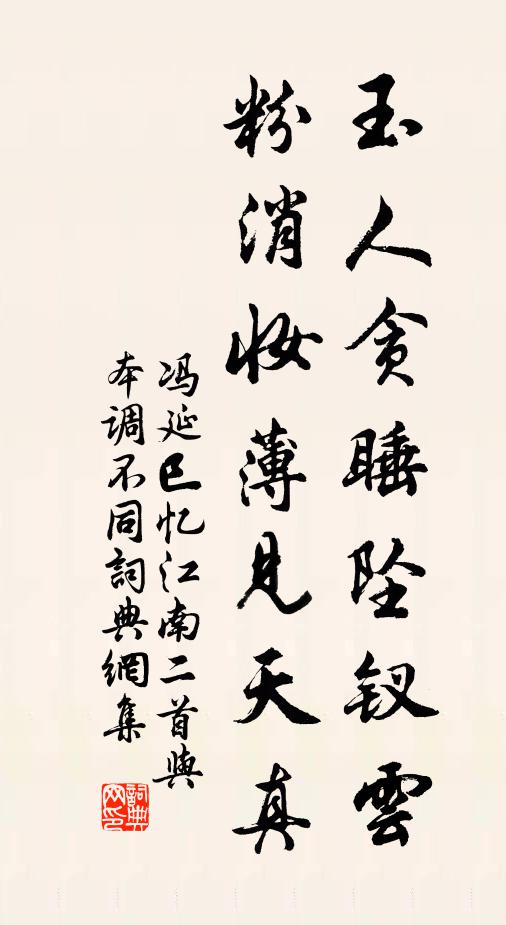 玉人贪睡坠钗雲
粉消妆薄見天真
冯延巳忆江南二首與
本调不同詞典網集
詞典网印